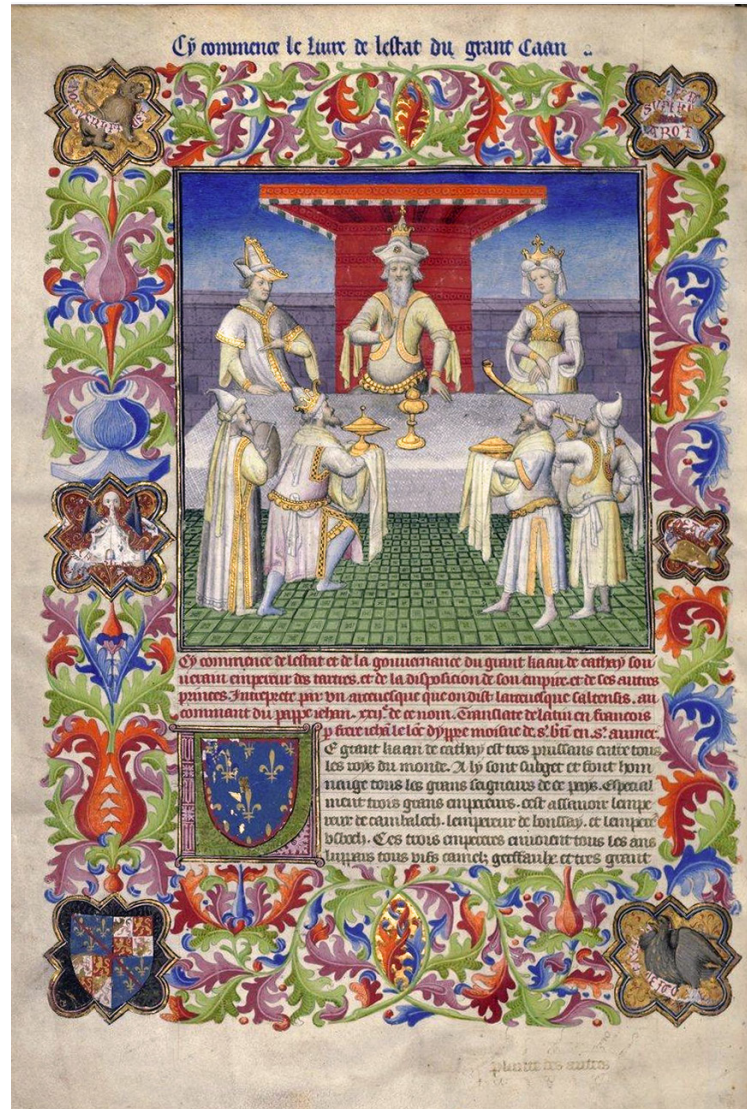 Cy commence le liure de lestat du grant Caan
Cy commence de lestat et de la gouuernance du grant kaan de cathay sou
uerain empereur des tartres. et de la disposicion de son empire. et de ses autres
princes. Interprete par vn arceuesque que on dist larceuesque saltensis. au
command du pappe iehan. xxij.e de ce nom. Translate de latin en francois
p frere iehan le lonc dyppre moisne de s.t b'tin en s.t aumer.
E grant kaan de cathay est tres puissans entre tous
les roys du monde. A ly sont subget et font hom
mage tous les grans saigneurs de ce pays. Especial
ment trois grans empereurs. cest assauoir lempe
reur de cambalech. lempereur de boussay. et lemper
vsbech. Ces trois emperers enuoient tous les ans
lupars tous vifs camelz gerffaulx et tres grant